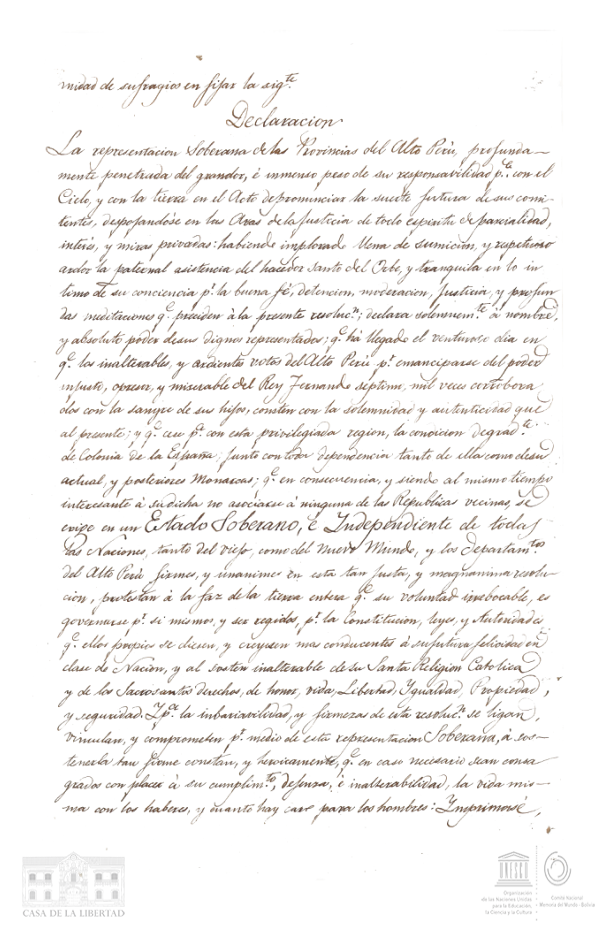 midad de sufragios en fijar la sig.te
Declaracion
La representacion Soberana de las Provincias del Alto Perú, profunda-
mente penetrada del grandor, é inmenso peso de su responsabilidad p.a con el
Cielo, y con la tierra en el Acto de pronunciar la suerte futura de sus comi-
tentes, despojandose en las Aras de la justicia de todo espiritu de parcialidad,
interés, y miras privadas: habiendo implorado llena de sumicion, y respetuoso
ardor la paternal asistencia del hacedor Santo del Orbe, y tranquila en lo in-
timo de su conciencia p.r la buena fé, detencion, moderacion, Justicia, y profun
das meditaciones q.e preciden á la presente resoluc.n; declara solennem.te á nombre,
y absoluto poder de sus dignos representados; q.e há llegado el venturoso dia en
q.e los inalterables, y ardientes votos del Alto Perú p.r emanciparse del poder
injusto, opresor, y miserable del Rey Fernando septimo, mil veces corrobora
dos con la sangre de sus hijos, consten con la solemnidad y autenticidad que
al presente; y q.e p.a con esta privilegiada region, la condicion degrad.te
de Colonia de la España; junto con toda dependencia tanto de ella como de su
actual, y posteriores Monarcas; q.e en consecuencia, y siendo al mismo tiempo
interesante á su dicha no asociarse á ninguna de las Republica vecinas, se
erige en un Estado Soberano, é Independiente de todas
las Naciones, tanto del viejo, como del Nuevo Mundo, y los Departam.tos
del Alto Perú firmes, y unanimes en esta tan justa, y magnanima resolu-
cion, protestan á la faz de la tierra entera q.e su voluntad irrebocable, es
governarse p.r si mismos, y ser regidos, p.r la Constitucion, leyes, y Autoridades
q.e ellos propios se diesen, y creyesen mas conducentes á su futura felicidad en
clase de Nacion, y al sosten inalterable de su Santa Religion Catolica
y de los Sacrosantos derechos, de honor, vida, Libertad, Igualdad, Propiedad,
y seguridad. Y p.a la inbariavilidad, y firmeza de esta resoluc.n se ligan,
vinculan, y comprometen p.r medio de esta representacion Soberana, á sos-
tenerla tan firme y heroicamente, q.e en caso necesario sean consa
grados con placer á su cumplim.to, defensa, é inalterabilidad, la vida mis-
ma con los haberes, y cuanto hay caro para los hombres: Imprimase,
CASA DE LA LIBERTAD
UNESCO
Organización
de las Naciones Unidas
para la Educación,
la Ciencia y la Cultura
Comité Nacional
Memoria del Mundo - Bolivia